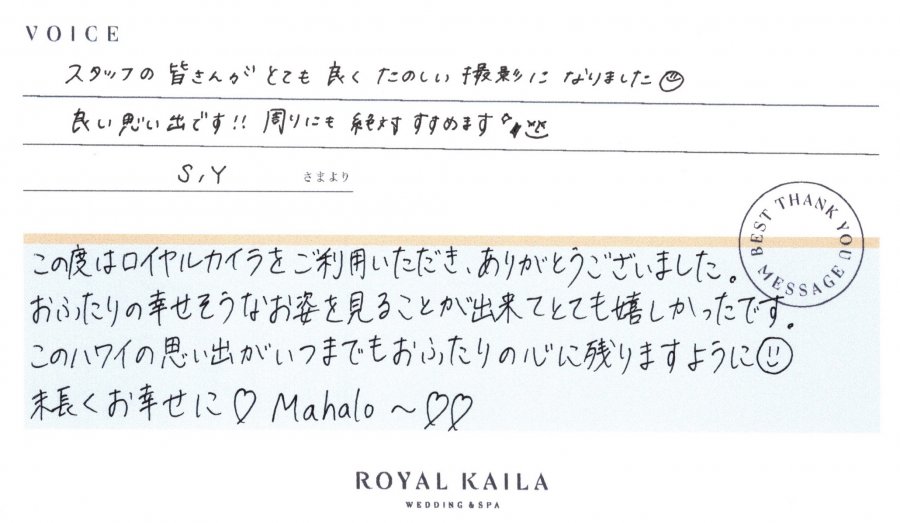 VOICE
スタッフの皆さんがとても良くたのしい撮影になりました
良い思い出です!! 周りにも絶対すすめます
S,Y さまより
BEST THANK YOU MESSAGE
この度はロイヤルカイラをご利用いただき、ありがとうございました。
おふたりの幸せそうなお姿を見ることが出来てとても嬉しかったです。
このハワイの思い出がいつまでもおふたりの心に残りますように
末長くお幸せに♡ Mahalo～♡♡
ROYAL KAILA
WEDDING & SPA